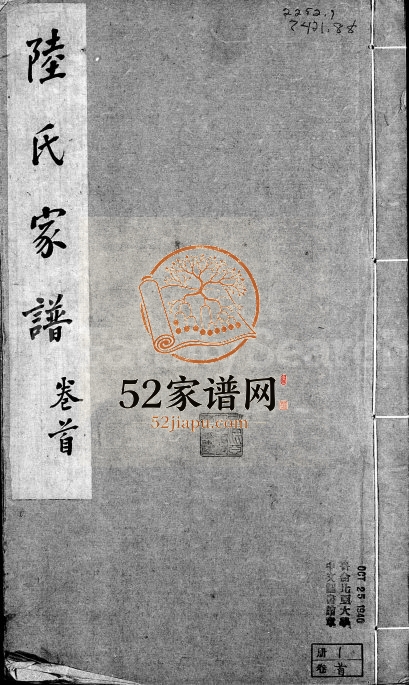 2252.9
7421.88
陸氏家譜
卷首
52家谱网
52jiapu.com
OCT 25 1940
大學
册 1
卷 首